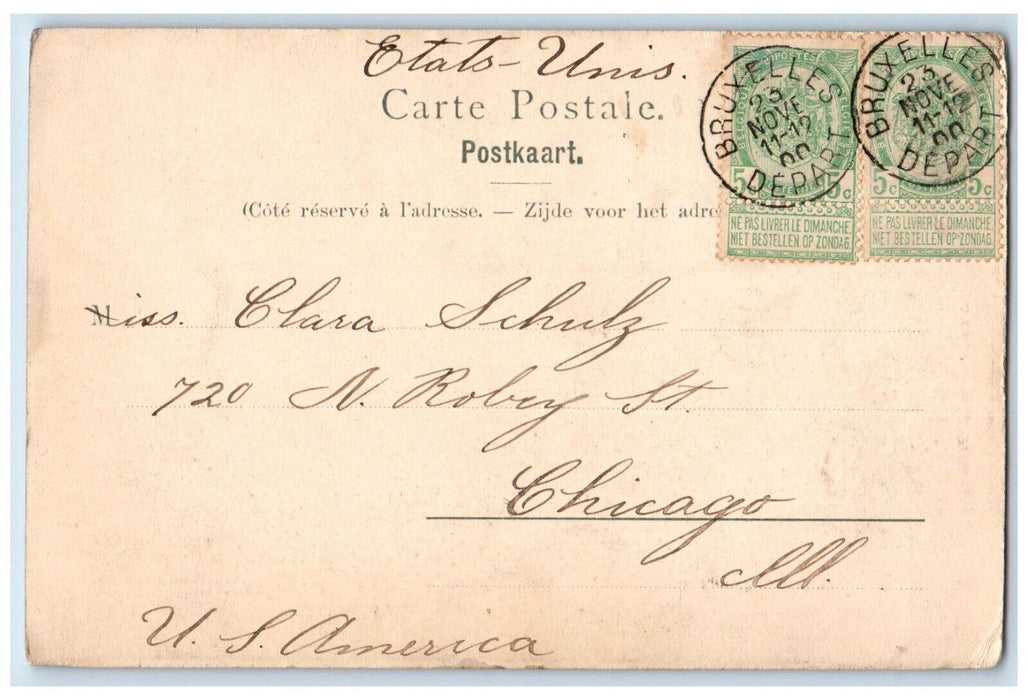 Etats-Unis.
Carte Postale.
Postkaart.
(Côté réservé à l'adresse. — Zijde voor het adre
BRUXELLES
23
NOVE
11-12
00
DÉPART
5 5c
NE PAS LIVRER LE DIMANCHE
NIET BESTELLEN OP ZONDAG
BRUXELLES
23
NOVE
11-12
00
DÉPART
5c 5c
NE PAS LIVRER LE DIMANCHE
NIET BESTELLEN OP ZONDAG
Miss. Clara Schulz
720 N. Robey St.
Chicago
Ill.
U. S. America